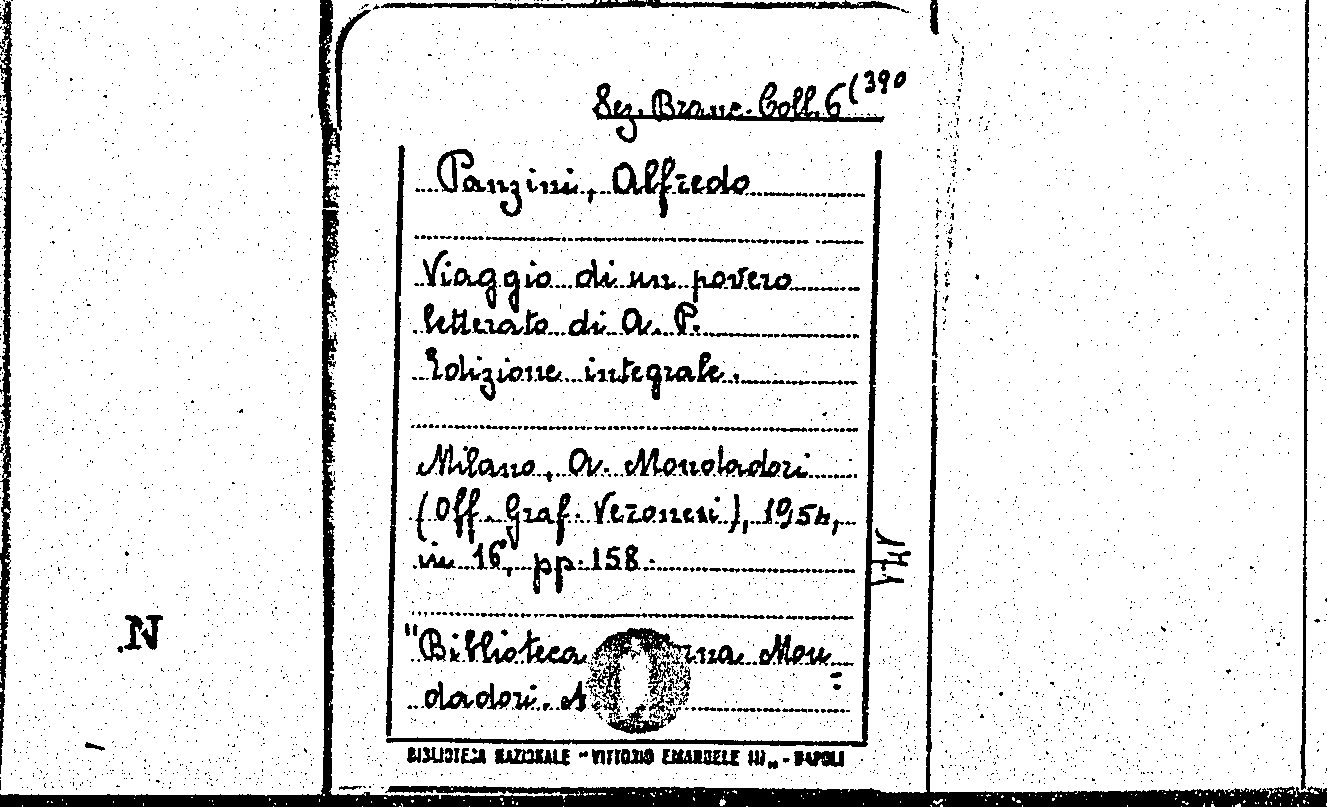 Sez. Branc. Coll. 6 (390
Panzini, Alfredo
Viaggio di un povero
letterato di A. P.
Edizione integrale.
Milano, A. Mondadori
(Off. Graf. Veronesi), 1954,
in 16, pp. 158.
"Biblioteca Mon=
dadori.
BIBLIOTECA NAZIONALE "VITTORIO EMANUELE III„ - NAPOLI
N.